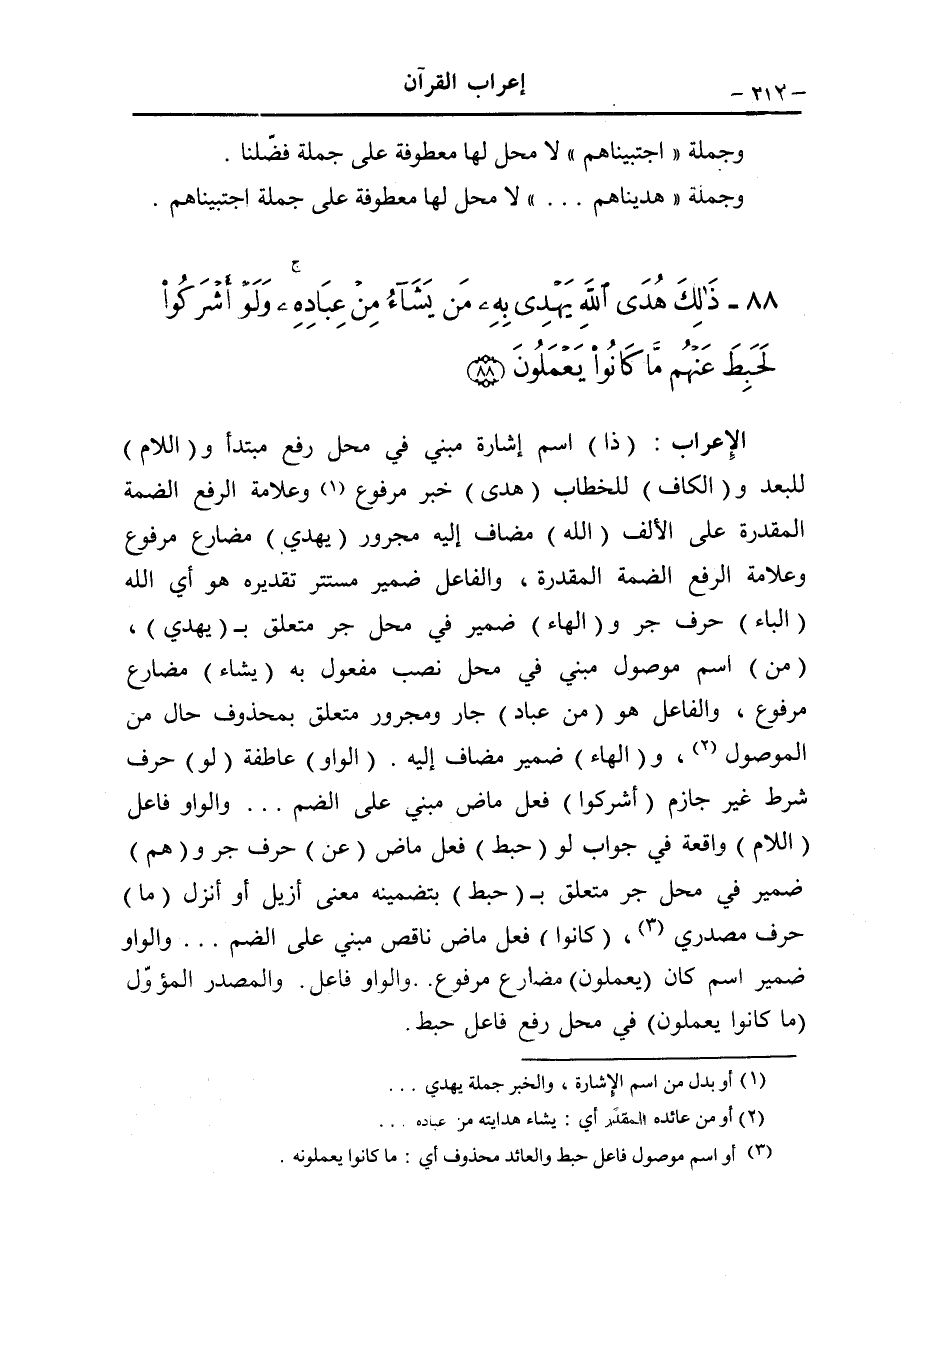 - ٣١٢ -
إعراب القرآن
وجملة « اجتبيناهم » لا محل لها معطوفة على جملة فضّلنا .
وجملة « هديناهم . . . » لا محل لها معطوفة على جملة اجتبيناهم .
٨٨ - ذَٰلِكَ هُدَى ٱللَّهِ يَهْدِى بِهِۦ مَن يَشَآءُ مِنْ عِبَادِهِۦ ۚ وَلَوْ أَشْرَكُوا۟
لَحَبِطَ عَنْهُم مَّا كَانُوا۟ يَعْمَلُونَ (٨٨)
الإعراب : ( ذا ) اسم إشارة مبني في محل رفع مبتدأ و( اللام )
للبعد و( الكاف ) للخطاب ( هدى ) خبر مرفوع (١) وعلامة الرفع الضمة
المقدرة على الألف ( الله ) مضاف إليه مجرور ( يهدي ) مضارع مرفوع
وعلامة الرفع الضمة المقدرة ، والفاعل ضمير مستتر تقديره هو أي الله
( الباء ) حرف جر و( الهاء ) ضمير في محل جر متعلق بـ( يهدي ) ،
( من ) اسم موصول مبني في محل نصب مفعول به ( يشاء ) مضارع
مرفوع ، والفاعل هو ( من عباد ) جار ومجرور متعلق بمحذوف حال من
الموصول (٢) ، و( الهاء ) ضمير مضاف إليه . ( الواو ) عاطفة ( لو ) حرف
شرط غير جازم ( أشركوا ) فعل ماض مبني على الضم . . . والواو فاعل
( اللام ) واقعة في جواب لو ( حبط ) فعل ماض ( عن ) حرف جر و( هم )
ضمير في محل جر متعلق بـ( حبط ) بتضمينه معنى أزيل أو أنزل ( ما )
حرف مصدري (٣) ، ( كانوا ) فعل ماض ناقص مبني على الضم . . . والواو
ضمير اسم كان (يعملون) مضارع مرفوع. .والواو فاعل. والمصدر المؤوّل
(ما كانوا يعملون) في محل رفع فاعل حبط.
(١) أو بدل من اسم الإشارة ، والخبر جملة يهدي . . .
(٢) أو من عائده المقدّر أي : يشاء هدايته من عباده . . .
(٣) أو اسم موصول فاعل حبط والعائد محذوف أي : ما كانوا يعملونه .